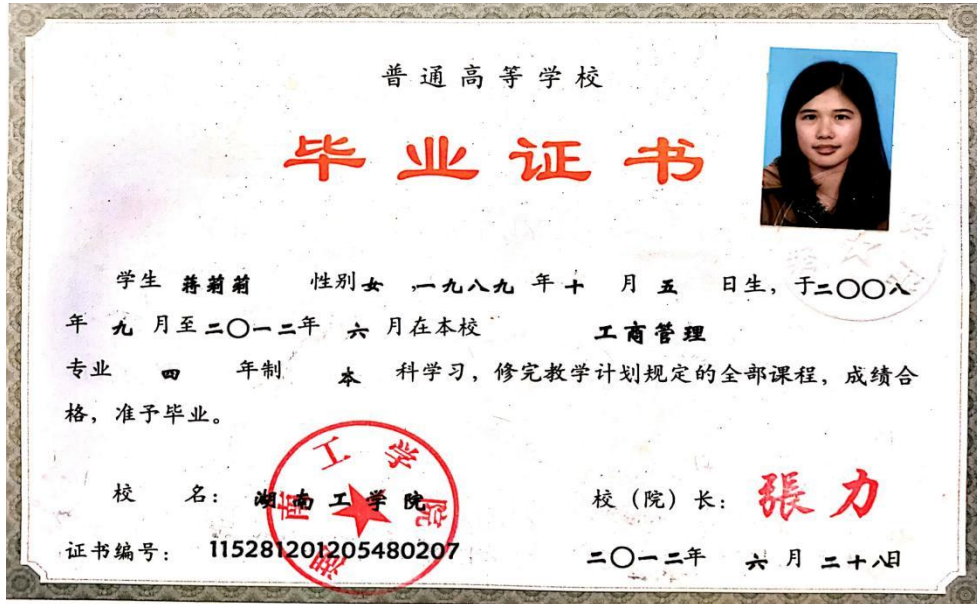 普通高等学校
毕业证书
学生 蒋莉莉 性别 女 ,一九八九 年 十 月 五 日生，于二〇〇八
年 九 月至 二〇一二年 六 月在本校 工商管理
专业 四 年制 本 科学习，修完教学计划规定的全部课程，成绩合
格，准予毕业。
校 名： 湖南工学院
湖南工学院
校（院）长： 張力
证书编号： 115281201205480207
二〇一二年 六 月 二十八日